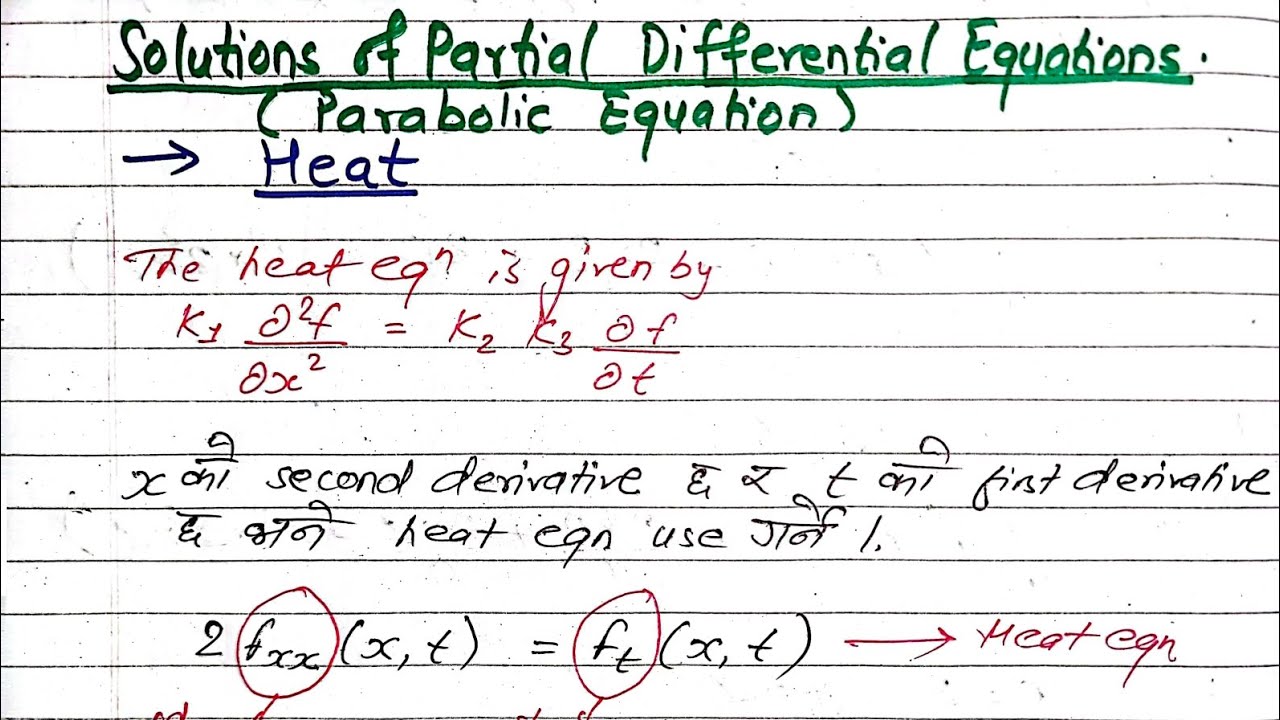 Solutions of Partial Differential Equations.
(Parabolic Equation)
→ Heat
The heat eqⁿ is given by
K₁ ∂²f/∂x² = K₂ K₃ ∂f/∂t
x को second derivative छ र t को first derivative
छ भने heat eqn use गर्ने ।.
2 fxx (x, t) = ft (x, t) → Heat eqn